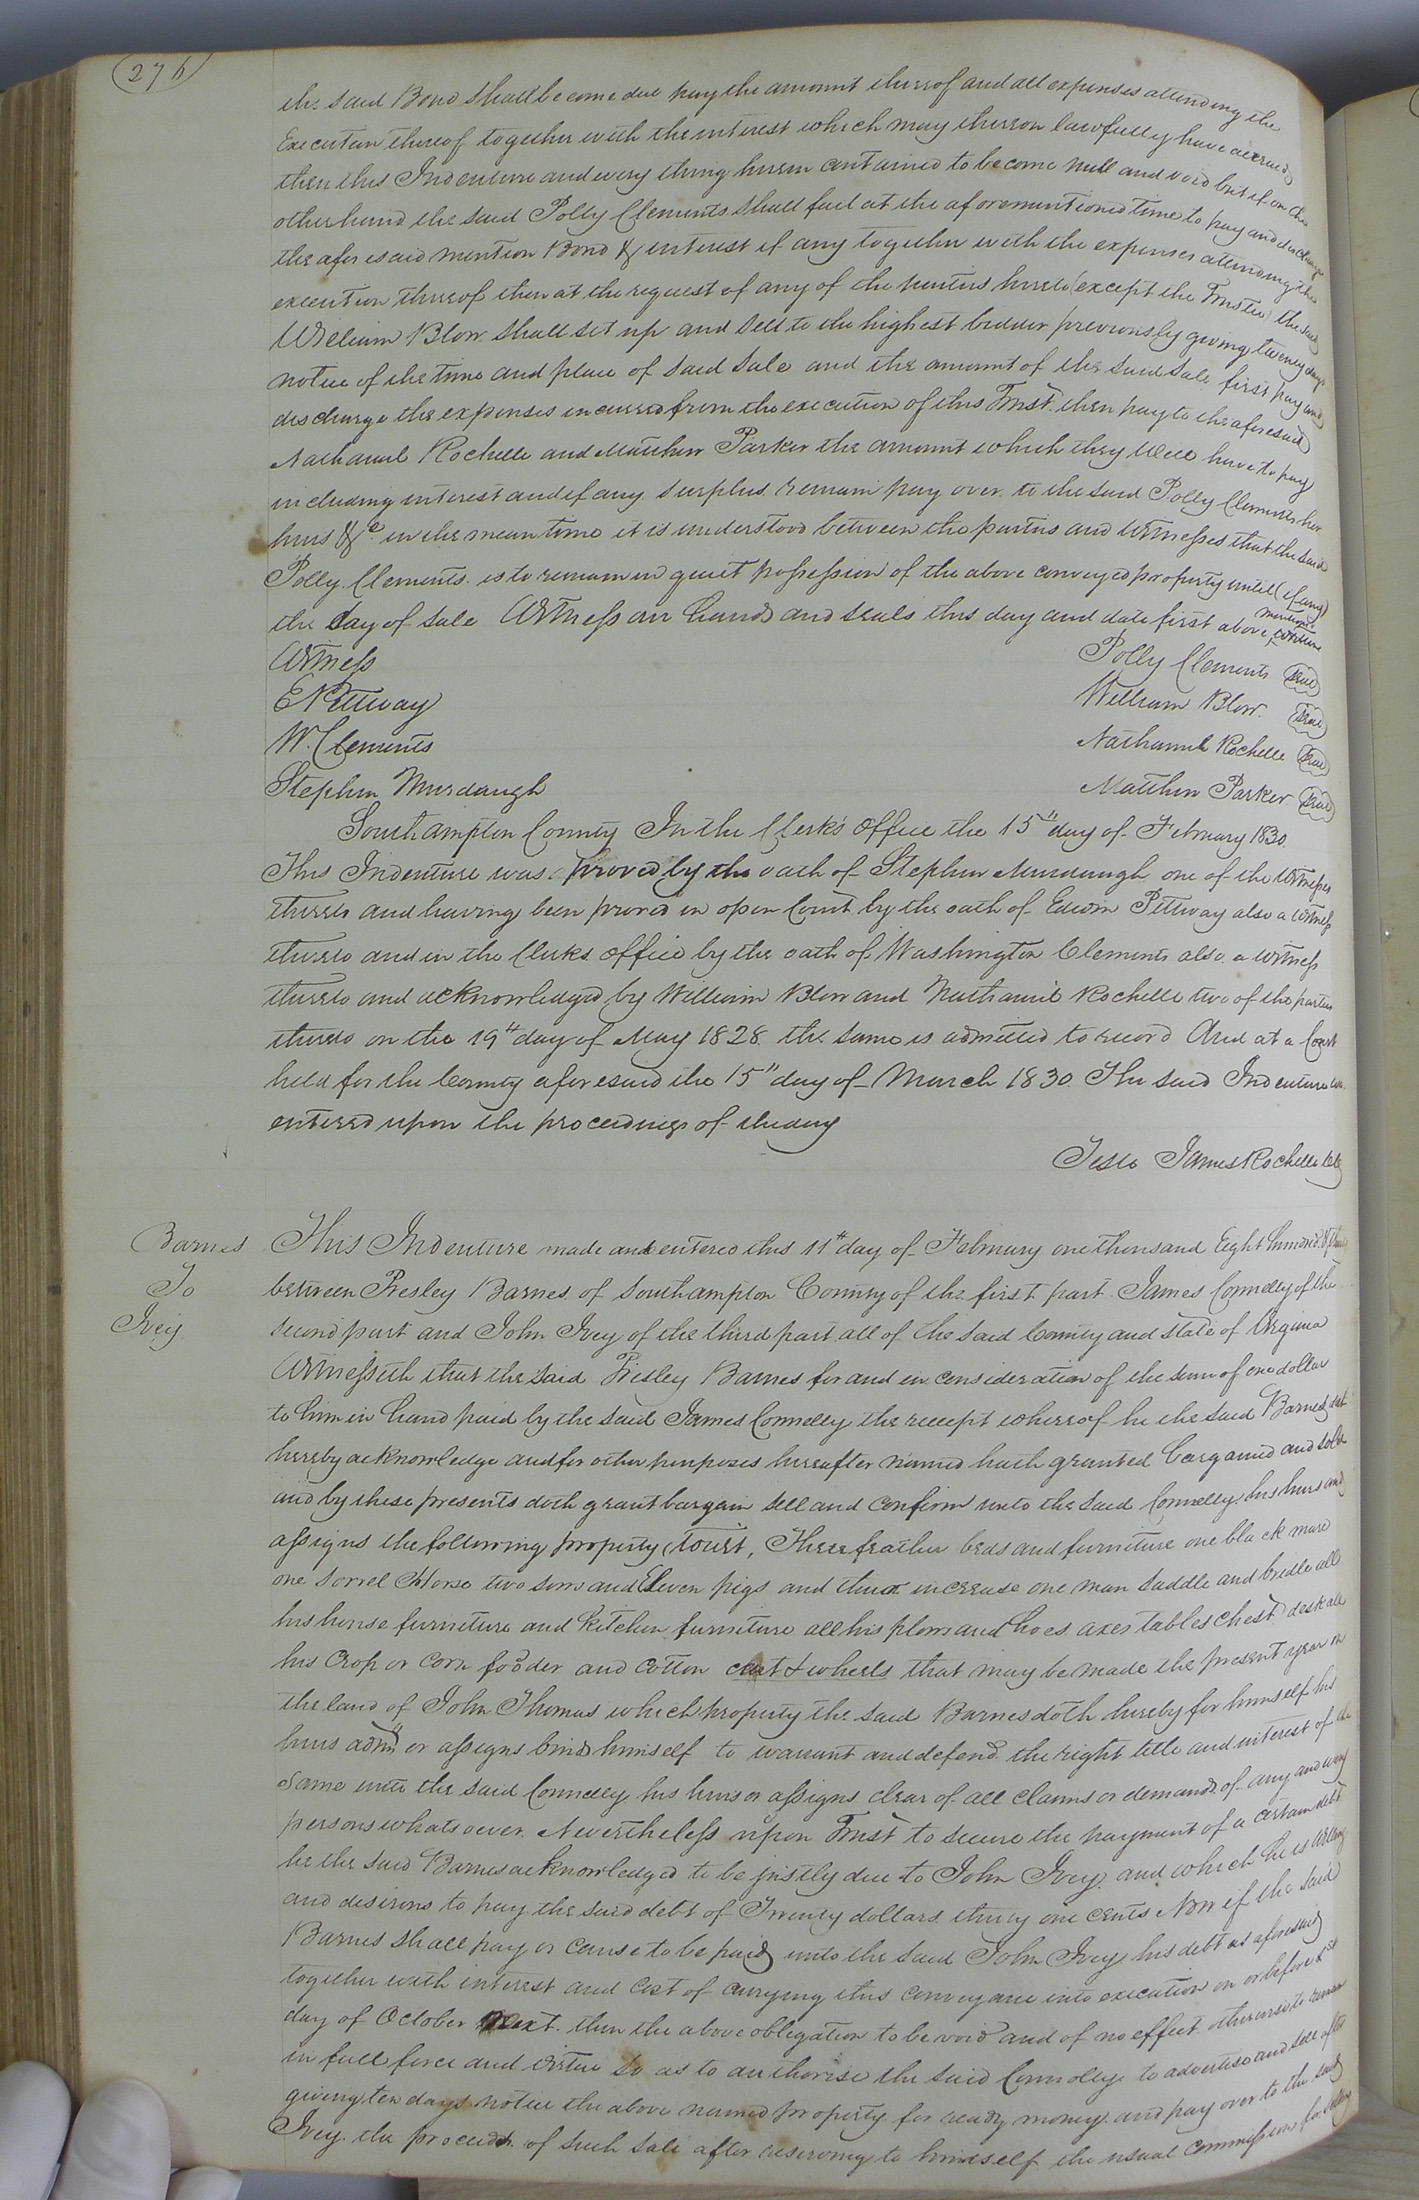 276
the said Bond shall become due pay the amount thereof and all expenses attending the
Execution thereof together with the interest which may thereon lawfully have accrued
then this Indenture and every thing herein contained to become null and void but if on the
other hand the said Polly Clements shall fail at the aforementioned time to pay and discharge
the aforesaid mention Bond & interest if any together with the expenses attending the
execution thereof then at the request of any of the parties hereto (except the Trustee) the said
William Blow shall set up and sell to the highest bidder previously giving twenty days
notice of the time and place of said sale and the amount of the said sale first pay and
discharge the expenses incurred from the execution of this Trust then pay to the aforesaid
Nathaniel Rochelle and Matthew Parker the amount which they will have to pay
including interest and if any surplus remain pay over to the said Polly Clements her
heirs &c in the mean time it is understood between the parties and Witnesses that the said
Polly Clements is to remain in quiet possession of the above conveyed property until (if any)
the day of sale Witness our hands and seals this day and date first above mentioned written
Witness
E Pettway
W. Clements
Stephen Murdaugh
Polly Clements Seal
William Blow Seal
Nathaniel Rochelle Seal
Matthew Parker Seal
Southampton County In the Clerk's Office the 15th day of February 1830.
This Indenture was proved by the oath of Stephen Murdaugh one of the Witnesses
thereto and having been proved in open Court by the oath of Edwin Pettway also a Witness
thereto and in the Clerks office by the oath of Washington Clements also a witness
thereto and acknowledged by William Blow and Nathaniel Rochelle two of the parties
thereto on the 19th day of May 1828. the same is admitted to record And at a Court
held for the County aforesaid the 15" day of March 1830. The said Indenture was
entered upon the proceedings of the day
Teste James Rochelle Clk
Barnes
To
Ivey
This Indenture made and entered this 11th day of February one thousand Eight hundred &
between Presley Barnes of Southampton County of the first part James Connelly of the
second part and John Ivey of the third part all of the said County and state of Virginia
Witnesseth that the said Presley Barnes for and in consideration of the sum of one dollar
to him in hand paid by the said James Connelly the receipt whereof he the said Barnes doth
hereby acknowledge and for other purposes hereafter named hath granted bargained and sold
and by these presents doth grant bargain sell and confirm unto the said Connelly his heirs and
assigns the following property towit, Three feather beds and furniture one black mare
one sorrel Horse two sows and Eleven pigs and their increase one man saddle and bridle all
his house furniture and kitchen furniture all his plows and hoes axes tables chest desk all
his crop or corn fodder and cotton cart & wheels that may be made the present year on
the land of John Thomas which property the said Barnes doth hereby for himself his
heirs admrs or assigns bind himself to warrant and defend the right title and interest of the
same unto the said Connelly his heirs or assigns clear of all claims or demands of any and every
persons whatsoever Nevertheless upon Trust to secure the payment of a certain debt
he the said Barnes acknowledged to be justly due to John Ivey and which he is willing
and desirous to pay the said debt of Twenty dollars thirty one cents Now if the said
Barnes shall pay or cause to be paid unto the said John Ivey his debt as aforesaid
together with interest and cost of carrying this conveyance into execution on or before 1st
day of October next then the above obligation to be void and of no effect otherwise to remain
in full force and virtue so as to authorise the said Connelly to advertise and sell after
giving ten days notice the above named property for ready money and pay over to the said
Ivey the proceeds of such sale after reserving to himself the usual commissions for selling